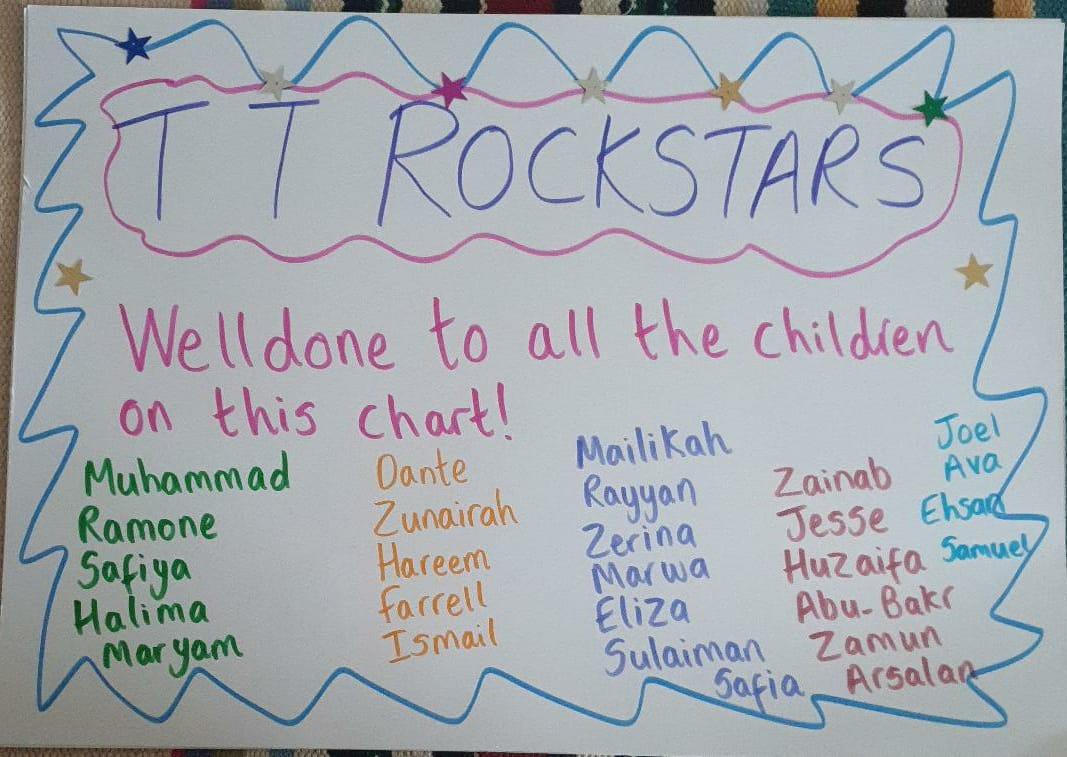 TT ROCKSTARS
Welldone to all the children
on this chart!
Muhammad
Ramone
Safiya
Halima
Maryam
Dante
Zunairah
Hareem
Farrell
Ismail
Mailikah
Rayyan
Zerina
Marwa
Eliza
Sulaiman
Safia
Zainab
Jesse
Huzaifa
Abu-Bakr
Zamun
Arsalan
Joel
Ava
Ehsan
Samuel